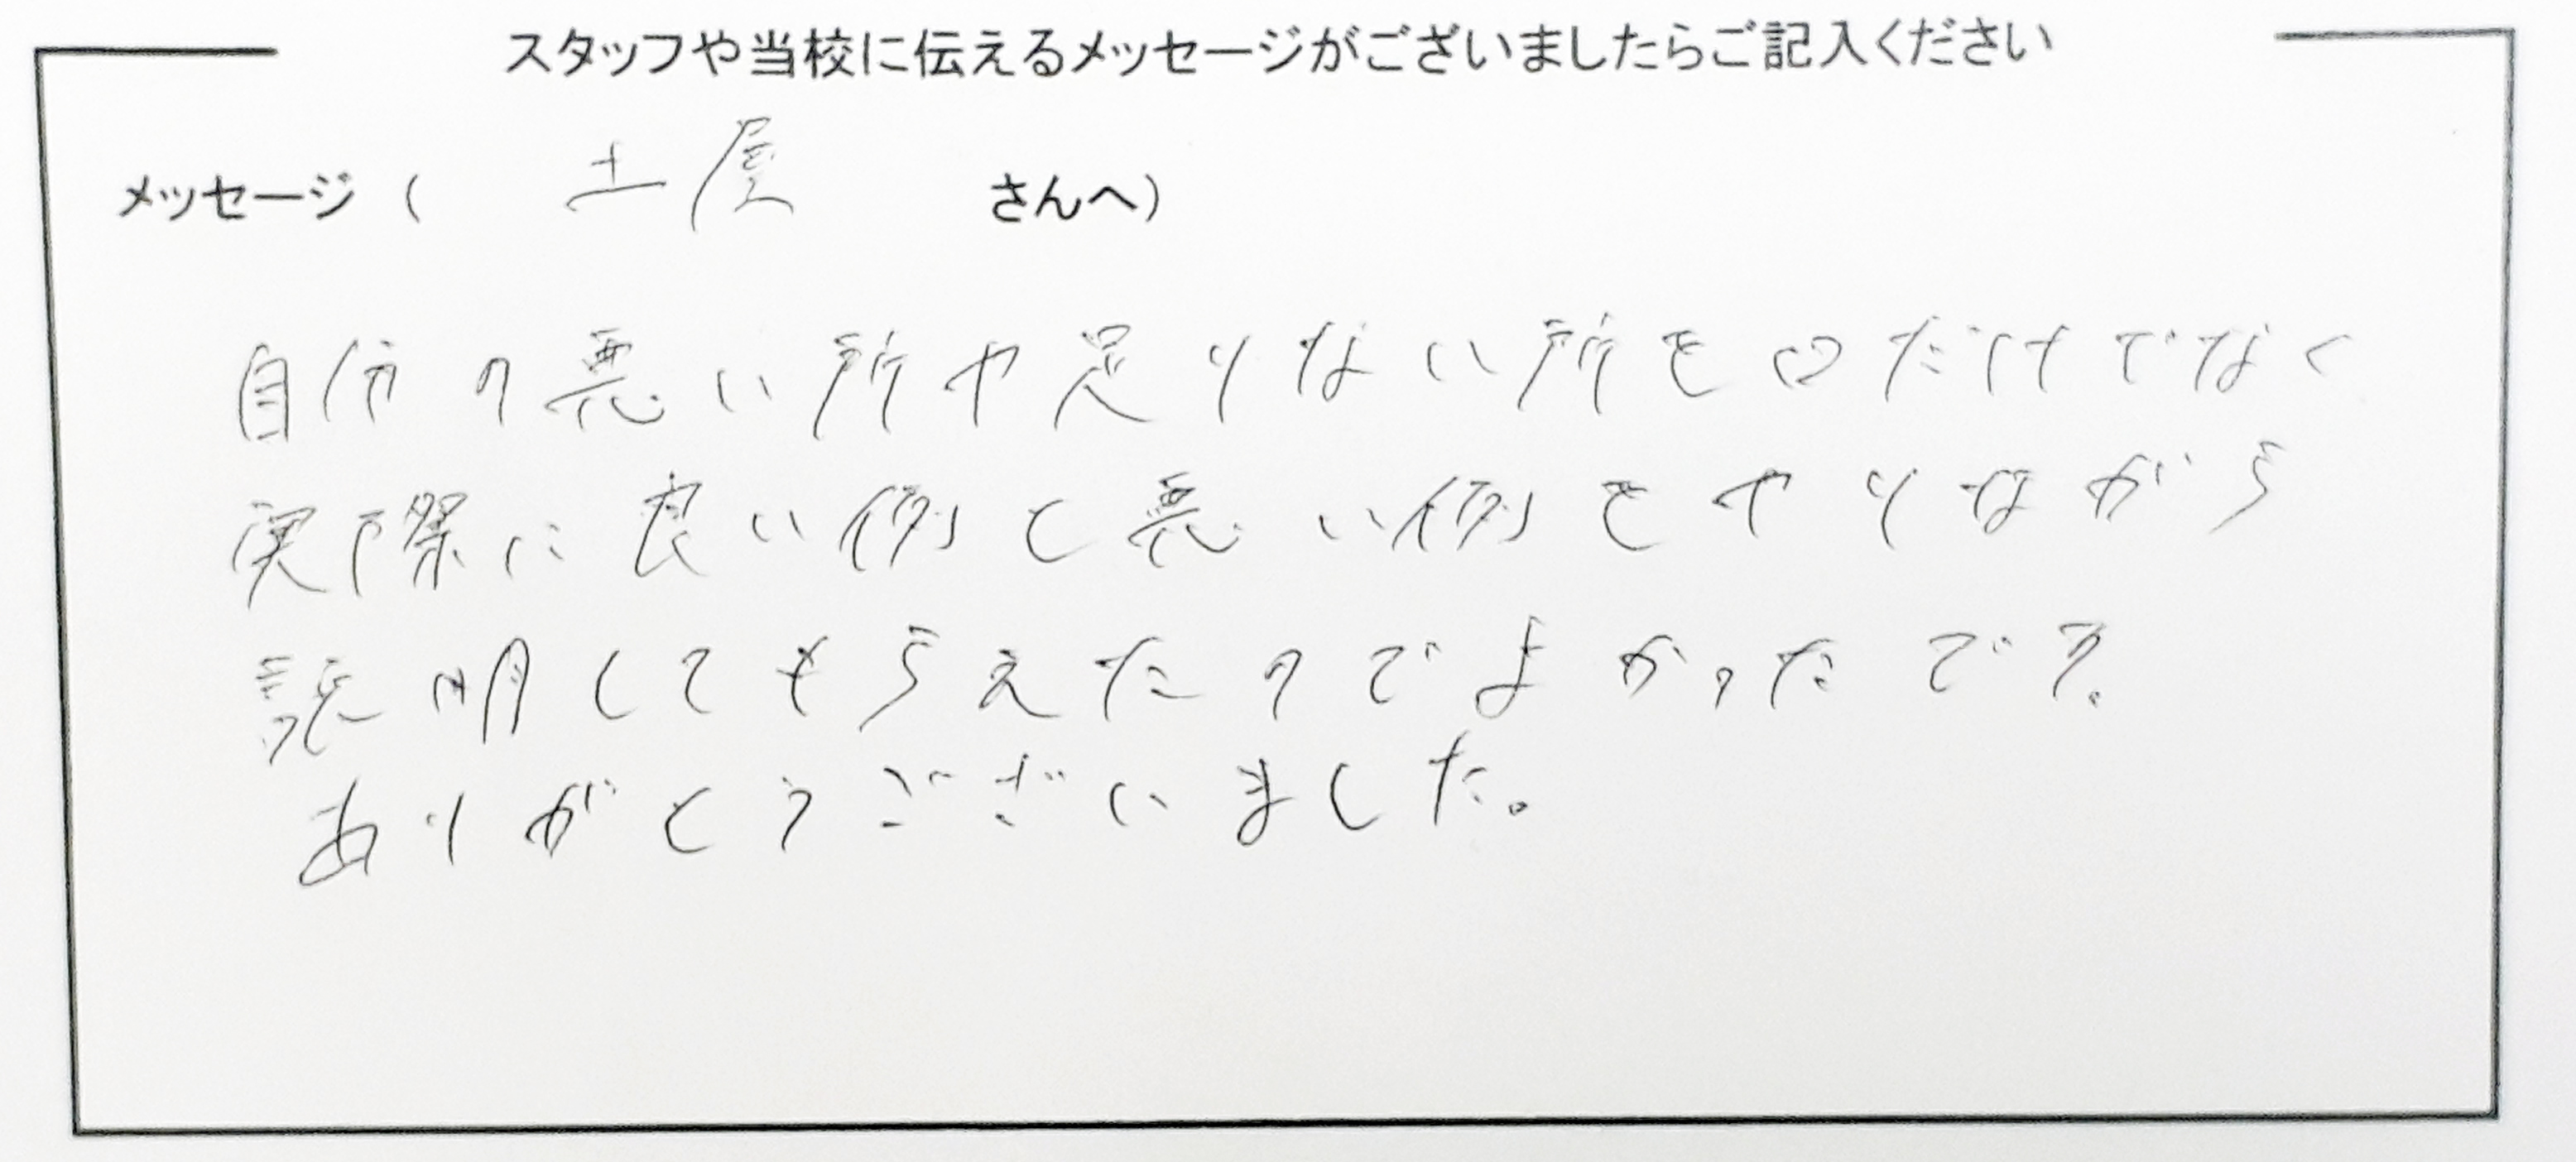 スタッフや当校に伝えるメッセージがございましたらご記入ください
メッセージ（ 土屋 さんへ）
自分の悪い所や足りない所を口だけでなく
実際に良い例と悪い例をやりながら
説明してもらえたのでよかったです。
ありがとうございました。